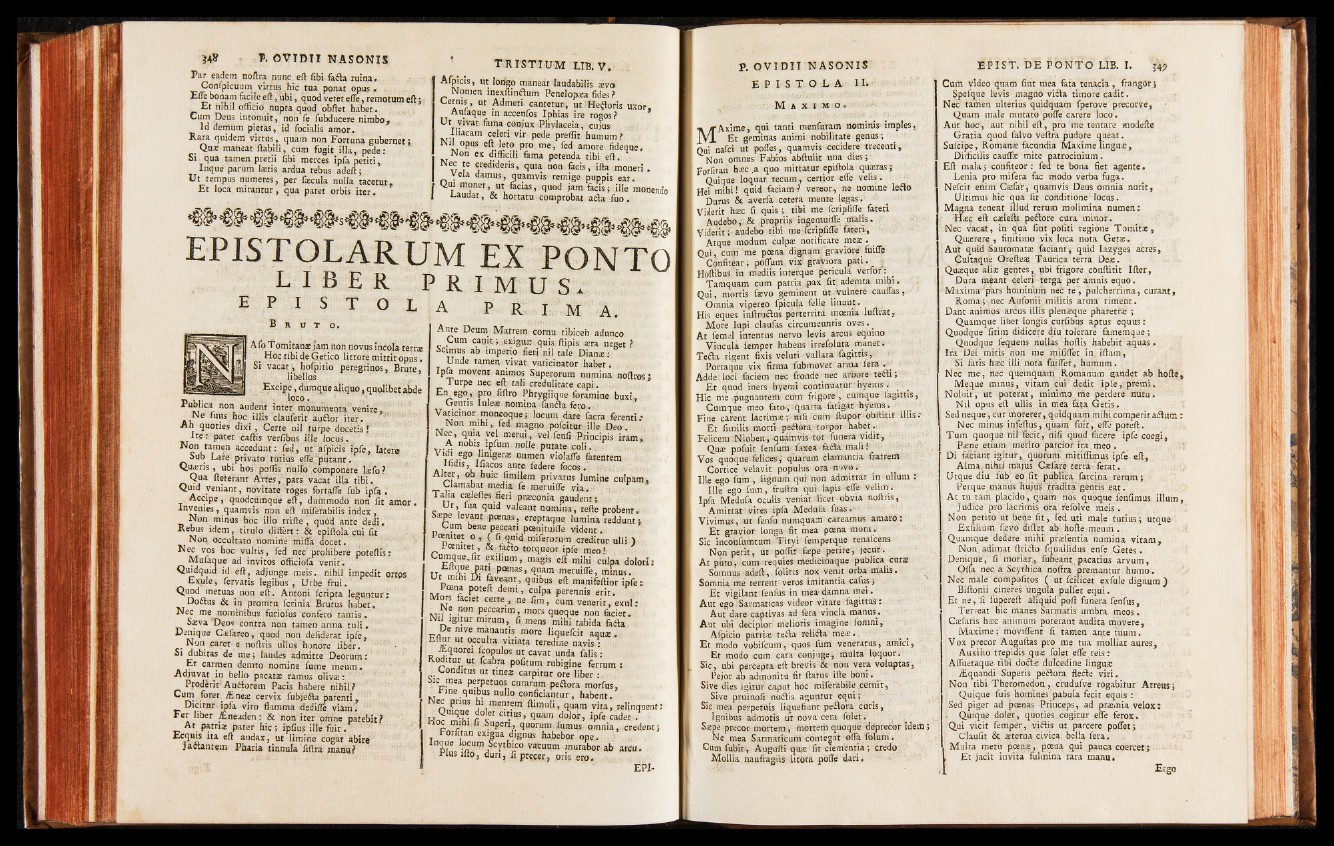 348 P. OVIDII NASONIS
Par eadem nostra nunc est sibi facta ruina.
Conspicuum virtus hic tua ponat opus.
Esse bonam facile est, ubi, quod vetet esse, remotum est;
Et nihil officio nupta quod obstet habet.
Cum Deus intonuit, non se subducere nimbo,
Id demum pietas, id socialis amor.
Rara quidem virtus, quam non Fortuna gubernet;
Quæ maneat stabili, cum fugit illa, pede:
Si qua tamen pretii sibi merces ipsa petiti,
Inque parum lætis ardua rebus adest;
Ut tempus numeres, per sæcula nulla tacetur,
Et loca mirantur, qua patet orbis iter.
TRISTIUM LIB. V.
Aspicis, ut longo maneat laudabilis ævo
Nomen inexstinctum Penelopæa fides?
Cernis, ut Admeti cantetur, ut Hectoris uxor,
Ausaque in accensos Iphias ire rogos?
Ut vivat fama conjux Phylaceia, cujus
Iliacam celeri vir pede pressit humum?
Nil opus est leto pro me, sed amore fideque.
Non ex difficili fama petenda tibi est.
Nec te credideris, quia non facis, ista moneri.
Vela damus, quamvis remige puppis eat.
Qui monet, ut facias, quod jam facis; ille monendo
Laudat, & hortatu comprobat acta suo.
EPISTOLARUM EX PONTO
LIBER PRIMUS.
EPISTOLA PRIMA.
BRUTO.
NAso Tomitanæ jam non novus incola terræ
Hoc tibi de Getico littore mittit opus.
Si vacat, hospitio peregrinos, Brute,
libellos
Excipe, dumque aliquo, quolibet abde
loco.
Publica non audent inter monumenta venire,
Ne suus hoc illis clauserit auctor iter.
Ah quoties dixi, Certe nil turpe docetis!
Ite: patet castis versibus ille locus.
Non tamen accedunt: sed, ut aspicis ipse, latere
Sub Lare privato tutius esse putant.
Quæris, ubi hos possis nullo componere læso?
Qua steterant Artes, pars vacat illa tibi.
Quid veniant, novitate roges fortasse sub ipsa.
Accipe, quodcumque est, dummodo non sit amor.
Invenies, quamvis non est miserabilis index,
Non minus hoc illo triste, quod ante dedi.
Rebus idem, titulo differt: & epistola cui sit
Non occultato nomine missa docet.
Nec vos hoc vultis, sed nec prohibere potestis:
Musaque ad invitos officiosa venit.
Quidquid id est, adjunge meis. nihil impedit ortos
Exule, servatis legibus, Urbe frui.
Quod metuas non est. Antoni scripta leguntur:
Doctus & in promtu scrinia Brutus habet.
Nec me nominibus furiosus confero tantis.
Sæva Deos contra non tamen arma tuli.
Denique Cæsareo, quod non desiderat ipse,
Non caret e nostris ullus honore liber.
Si dubitas de me; laudes admitte Deorum:
Et carmen demto nomine sume meum.
Adjuvat in bello pacatæ ramus olivæ:
Proderit Auctorem Pacis habere nihil?
Cum foret Æneæ cervix subjecta parenti,
Dicitur ipsa viro flamma dedisse viam.
Fer liber Æneaden: & non iter omne patebit?
At patriæ pater hic; ipsius ille fuit.
Ecquis ita est audax, ut limine cogat abire
Jactantem Pharia tinnula sistra manu?
Ante Deum Matrem cornu tibicen adunco
Cum canit; exiguæ quis stipis æra neget?
Scimus ab imperio fieri nil tale Dianæ:
Unde tamen vivat vaticinator habet.
Ipsa movent animos Superorum numina nostros;
Turpe nec est tali credulitate capi.
En ego, pro sistro Phrygiique foramine buxi,
Gentis Iuleæ nomina sancta fero.
Vaticinor moneoque; locum date sacra ferenti:
Non mihi, sed magno poscitur ille Deo.
Nec, quia vel merui, vel sensi Principis iram,
A nobis ipsum nolle putate coli.
Vidi ego linigeræ numen violasse fatentem
Isidis, Isiacos ante sedere focos.
Alter, ob huic similem privatus lumine culpam,
Clamabat media se meruisse via.
Talia cælestes fieri præconia gaudent;
Ut, sua quid valeant numina, teste probent.
Sæpe levant pœnas, ereptaque lumina reddunt;
Cum bene peccati pœnituisse vident.
Pœnitet o, ( si quid miserorum creditur ulli )
Pœnitet, & facto torqueor ipse meo!
Cumque sit exilium, magis est mihi culpa dolori:
Estque pati pœnas, quam meruisse, minus.
Ut mihi Di faveant, quibus est manifestior ipse:
Pœna potest demi, culpa perennis erit.
Mors faciet certe, ne sim, cum venerit, exul:
Ne non peccarim, mors quoque non faciet.
Nil igitur mirum, si mens mihi tabida facta
De nive manantis more liquescit aquæ.
Estur ut occulta vitiata teredine navis:
Æquorei scopulos ut cavat unda salis:
Roditur ut scabra positum rubigine ferrum:
Conditus ut tineæ carpitur ore liber:
Sic mea perpetuos curarum pectora morsus,
Fine quibus nullo conficiantur, habent.
Nec prius hi mentem stimuli, quam vita, relinquent:
Quique dolet citius, quam dolor, ipse cadet.
Hoc mihi si Superi, quorum sumus omnia, credent;
Forsitan exigua dignus habebor ope.
Inque locum Scythico vacuum mutabor ab arcu.
Plus isto, duri, si precer, oris ero.
EPI-
P. OVIDII NASONIS
EPISTOLA II.
MAXIMO.
MAxime, qui tanti mensuram nominis imples,
Et geminas animi nobilitate genus;
Qui nasci ut posses, quamvis cecidere trecenti,
Non omnes Fabios abstulit una dies;
Forsitan hæc a quo mittatur epistola quæras;
Quique loquar tecum, certior esse velis.
Hei mihi! quid faciam? vereor, ne nomine lecto
Durus & aversa cetera mente legas.
Viderit hæc si quis; tibi me scripsisse fateri
Audebo, & propriis ingemuisse malis.
Viderit; audebo tibi me scripsisse fateri,
Atque modum culpæ notificare meæ.
Qui, cum me pœna dignum graviore fuisse
Confitear; possum vix graviora pati.
Hostibus in mediis interque pericula versor:
Tamquam cum patria pax sit ademta mihi.
Qui, mortis sævo geminent ut vulnere caussas,
Omnia vipereo spicula felle linunt.
His eques instructus perterrita mœnia lustrat,
More lupi clausas circumeuntis oves.
At semel intentus nervo levis arcus equino
Vincula semper habens irresoluta manet.
Tecta rigent fixis veluti vallata sagittis,
Portaque vix firma submovet arma sera.
Adde loci faciem nec fronde nec arbore tecti;
Et quod iners hyemi continuatur hyems.
Hic me pugnantem cum frigore, cumque sagittis,
Cumque meo fato, quarta fatigat hyems.
Fine carent lacrimæ; nisi cum stupor obstitit illis:
Et similis morti pectora torpor habet.
Felicem Nioben, quamvis tot funera vidit,
Quæ posuit sensum saxea facta mali!
Vos quoque felices, quarum clamantia fratrem
Cortice velavit populus ora novo.
Ille ego sum, lignum qui non admittar in ullum:
Ille ego sum, frustra qui lapis esse velim.
Ipsa Medusa oculis veniat licet obvia nostris,
Amittat vires ipsa Medusa suas.
Vivimus, ut sensu numquam careamus amaro:
Et gravior longa fit mea pœna mora.
Sic inconsumtum Tityi semperque renascens
Non perit, ut possit sæpe perire, jecur.
At puto, cum requies medicinaque publica curæ
Somnus adest, solitis nox venit orba malis.
Somnia me terrent veros imitantia casus;
Et vigilant sensus in mea damna mei.
Aut ego Sarmaticas videor vitare sagittas:
Aut dare captivas ad fera vincla manus.
Aut ubi decipior melioris imagine somni,
Aspicio patriæ tecta relicta meæ.
Et modo vobiscum, quos sum veneratus, amici,
Et modo cum cara conjuge, multa loquor.
Sic, ubi percepta est brevis & non vera voluptas,
Pejor ab admonitu fit status iste boni.
Sive dies igitur caput hoc miserabile cernit,
Sive pruinosi noctis aguntur equi;
Sic mea perpetuis liquefiunt pectora curis,
Ignibus admotis ut nova cera solet.
Sæpe precor mortem, mortem quoque deprecor idem;
Ne mea Sarmaticum contegat ossa solum.
Cum subit, Augusti quæ sit clementia; credo
Mollia naufragiis litora posse dari.
EPIST. DE PONTO LIB. I. 349
Cum video quam sint mea fata tenacia, frangor;
Spesque levis magno victa timore cadit.
Nec tamen ulterius quidquam sperove precorve,
Quam male mutato posse carere loco.
Aut hoc, aut nihil est, pro me tentare modeste
Gratia quod salvo vestra pudore queat.
Suscipe, Romanæ facundia Maxime linguæ,
Difficilis caussæ mite patrocinium.
Est mala; confiteor: sed te bona fiet agente.
Lenia pro misera fac modo verba fuga.
Nescit enim Cæsar, quamvis Deus omnia norit,
Ultimus hic qua sit conditione locus.
Magna tenent illud rerum molimina numen:
Hæc est cælesti pectore cura minor.
Nec vacat, in qua sint positi regione Tomitæ,
Quærere, finitimo vix loca nota Getæ.
Aut quid Sauromatæ faciant, quid Iazyges acres,
Cultaque Oresteæ Taurica terra Deæ.
Quæque aliæ gentes, ubi frigore constitit Ister,
Dura meant celeri terga per amnis equo.
Maxima pars hominum nec te, pulcherrima, curant,
Roma; nec Ausonii militis arma timent.
Dant animos arcus illis plenæque pharetræ;
Quamque libet longis cursibus aptus equus:
Quodque sitim didicere diu tolerare famemque;
Quodque sequens nullas hostis habebit aquas.
Ira Dei mitis non me misisset in istam,
Si satis hæc illi nota fuisset, humum.
Nec me, nec quenquam Romanum gaudet ab hoste,
Meque minus, vitam cui dedit ipse, premi.
Noluit, ut poterat, minimo me perdere nutu.
Nil opus est ullis in mea fata Getis.
Sed neque, cur morerer, quidquam mihi comperit actum:
Nec minus infestus, quam fuit, esse potest.
Tum quoque nil fecit, nisi quod facere ipse coegi,
Pæne etiam merito parcior ira meo.
Di faciant igitur, quorum mitissimus ipse est,
Alma nihil majus Cæsare terra ferat.
Utque diu sub eo sit publica sarcina rerum;
Perque manus hujus tradita gentis eat.
At tu tam placido, quam nos quoque sensimus illum,
Judice pro lacrimis ora resolve meis.
Non petito ut bene sit, sed uti male tutius; utque
Exilium sævo distet ab hoste meum.
Quamque dedere mihi præsentia numina vitam,
Non adimat stricto squallidus ense Getes.
Denique, si moriar, subeant pacatius arvum,
Ossa nec a Scythica nostra premantur humo.
Nec male compositos ( ut scilicet exsule dignum )
Bistonii cineres ungula pulset equi.
Et ne, si superest aliquid post funera sensus,
Terreat hic manes Sarmatis umbra meos.
Cæsaris hæc animum poterant audita movere,
Maxime; movissent si tamen ante tuum.
Vox precor Augustas pro me tua molliat aures,
Auxilio trepidis quæ solet esse reis:
Assuetaque tibi doctæ dulcedine linguæ
Æquandi Superis pectora flecte viri.
Non tibi Theromedon, crudusve rogabitur Atreus;
Quique suis homines pabula fecit equis:
Sed piger ad pœnas Princeps, ad præmia velox:
Quique dolet, quoties cogitur esse ferox.
Qui vicit semper, victis ut parcere posset;
Clausit & æterna civica bella sera.
Multa metu pœnæ, pœna qui pauca coercet;
Et jacit invita fulmina rara manu.
Ergo